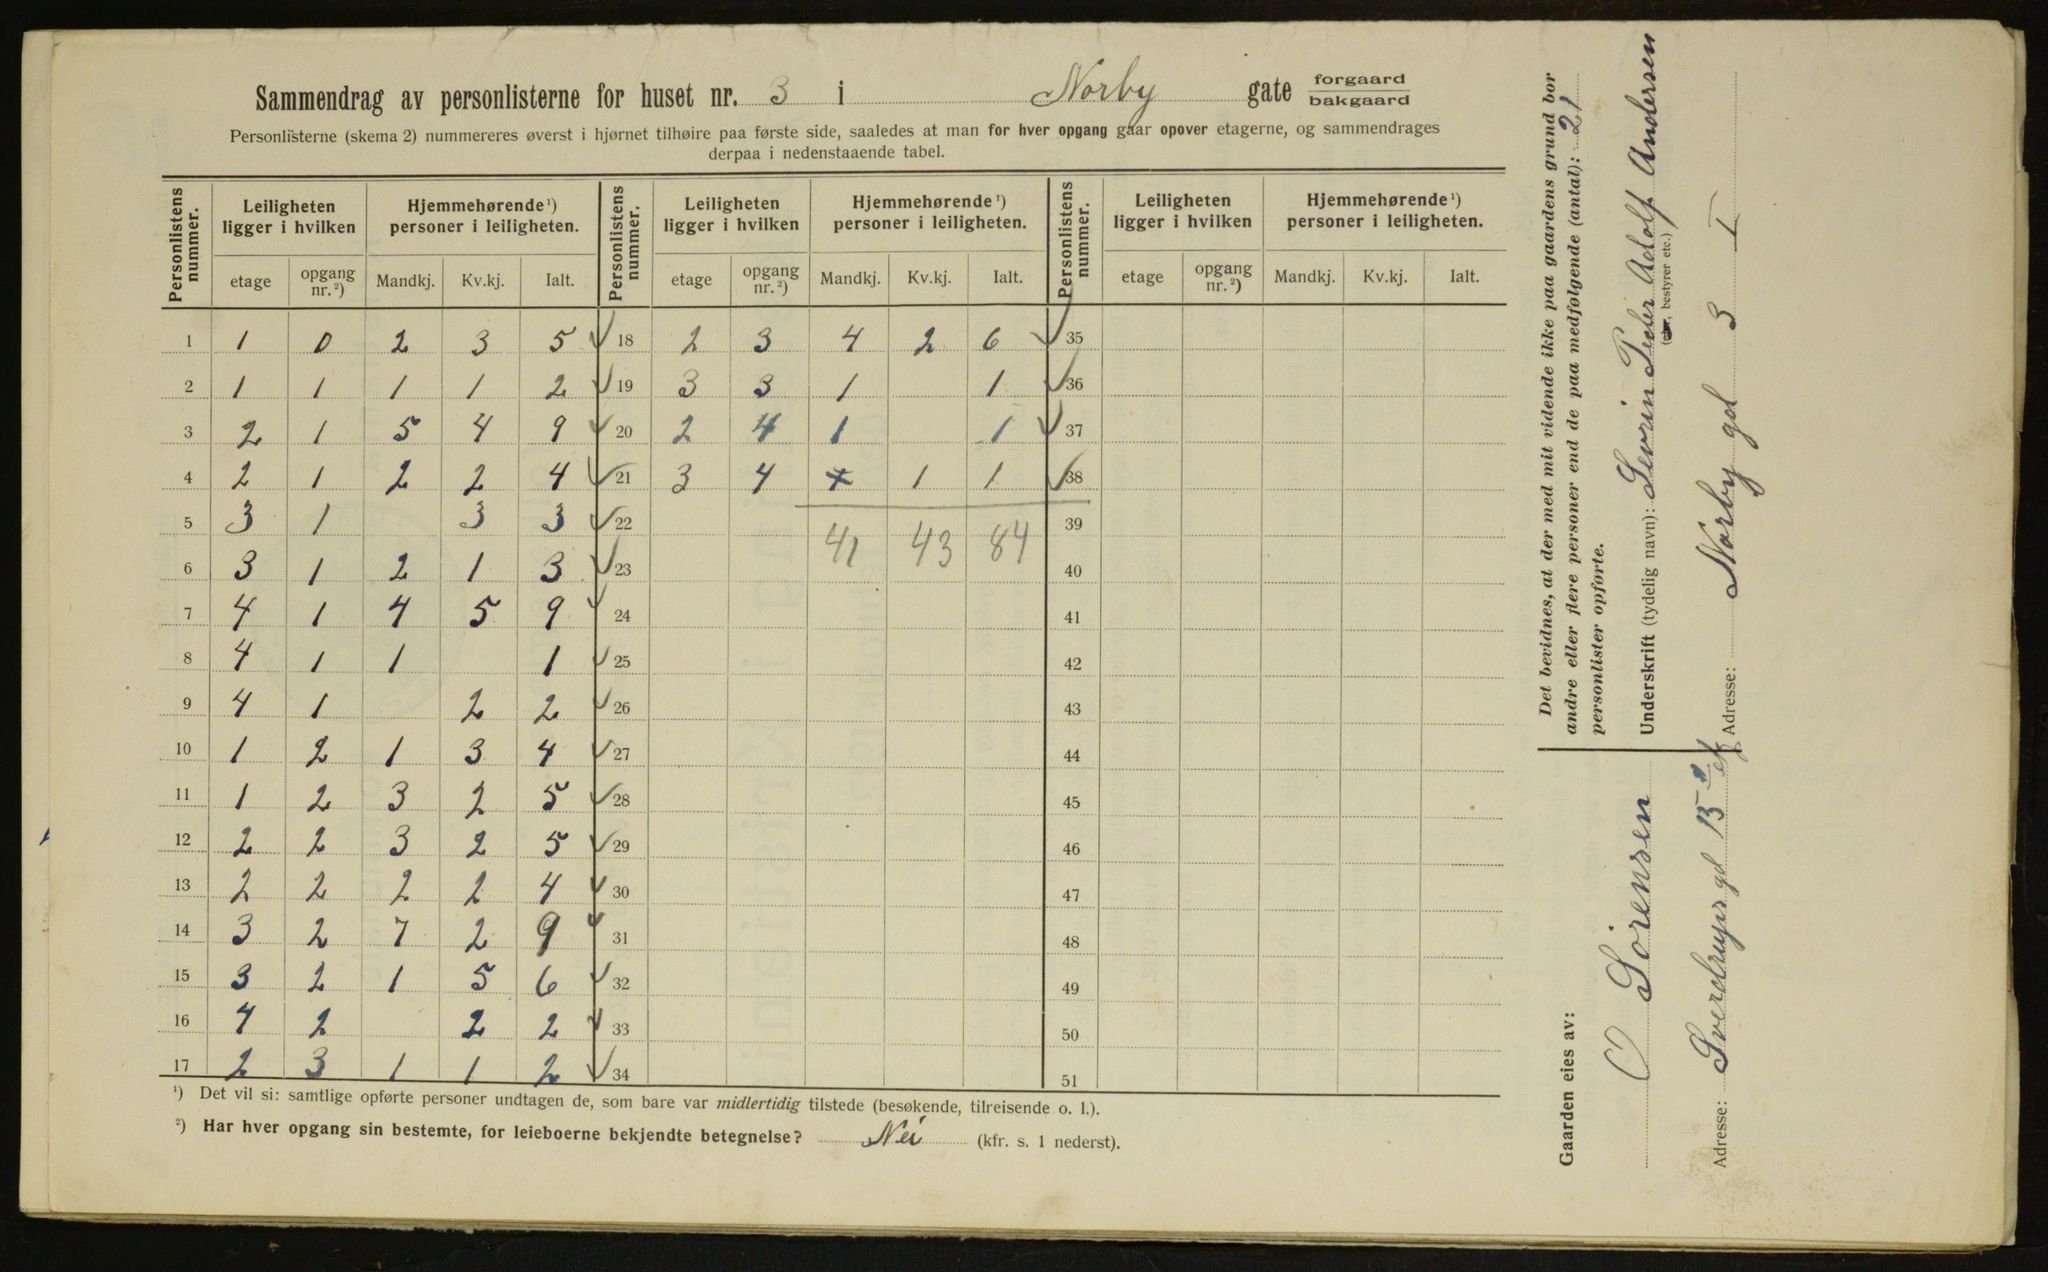 Sammendrag av personlisterne for huset nr. 3 i Norby gate forgaard
bakgaard
Personlisterne (skema 2) nummereres øverst i hjørnet tilhøire paa første side, saaledes at man for hver opgang gaar opover etagerne, og sammendrages
derpaa i nedenstaaende tabel.
Personlistens nummer. Leiligheten ligger i hvilken Hjemmehørende ¹) personer i leiligheten. Personlistens nummer. Leiligheten ligger i hvilken Hjemmehørende ¹) personer i leiligheten. Personlistens nummer. Leiligheten ligger i hvilken Hjemmehørende ¹) personer i leiligheten.
etage opgang nr. ²) Mandkj. Kv.kj. Ialt. etage opgang nr. ²) Mandkj. Kv.kj. Ialt. etage opgang nr. ²) Mandkj. Kv.kj. Ialt.
1 1 0 2 3 5 18 2 3 4 2 6 35
2 1 1 1 1 2 19 3 3 1 1 36
3 2 1 5 4 9 20 2 4 1 1 37
4 2 1 2 2 4 21 3 4 x 1 1 38
5 3 1 3 3 22 39
41 43 84
6 3 1 2 1 3 23 40
7 4 1 4 5 9 24 41
8 4 1 1 1 25 42
9 4 1 2 2 26 43
10 1 2 1 3 4 27 44
11 1 2 3 2 5 28 45
12 2 2 3 2 5 29 46
13 2 2 2 2 4 30 47
14 3 2 7 2 9 31 48
15 3 2 1 5 6 32 49
16 4 2 2 2 33 50
17 2 3 1 1 2 34 51
¹) Det vil si: samtlige opførte personer undtagen de, som bare var midlertidig tilstede (besøkende, tilreisende o. l.).
²) Har hver opgang sin bestemte, for leieboerne bekjendte betegnelse? Nei (kfr. s. 1 nederst).
Det bevidnes, at der med mit vidende ikke paa gaardens grund bor
andre eller flere personer end de paa medfølgende (antal): 21
personlister opførte.
Underskrift (tydelig navn): Sevrin Peder Adolf Andersen
(eier, bestyrer etc.)
Adresse: Norby gd 3 I
Gaarden eies av:
O Sörensen
Adresse: Sverdrups gd 15